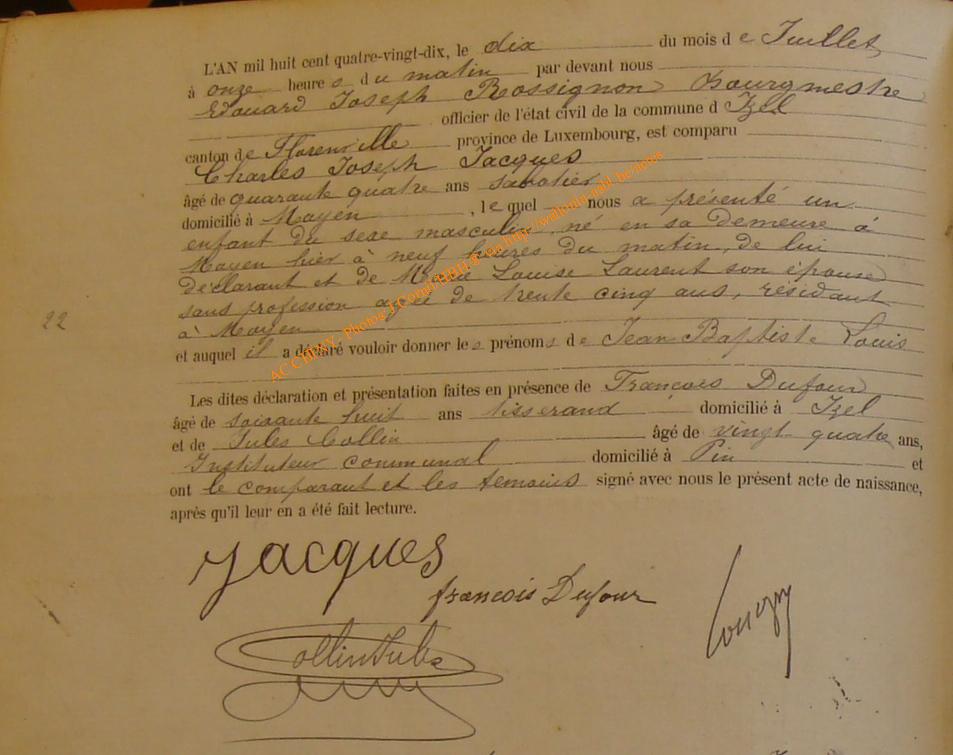 L'AN mil huit cent quatre-vingt-dix, le dix du mois de Juillet
à onze heures du matin par devant nous
Edouard Joseph Rossignon Bourgmestre
officier de l'état civil de la commune d Izel
canton de Florenville province de Luxembourg, est comparu
Charles Joseph Jacques
âgé de quarante quatre ans sabotier
domicilié à Moyen, lequel nous a présenté un
enfant du sexe masculin, né en sa demeure à
Moyen hier à neuf heures du matin, de lui
déclarant et de Marie Louise Laurent son épouse
sans profession agée de trente cinq ans, résidant
à Moyen
22
et auquel il a déclaré vouloir donner les prénoms de Jean Baptiste Louis
Les dites déclaration et présentation faites en présence de François Dufour
âgé de soixante huit ans tisserand domicilié à Izel
et de Jules Collin âgé de vingt quatre ans,
Instituteur communal domicilié à Pin et
ont le comparant et les temoins signé avec nous le présent acte de naissance,
après qu'il leur en a été fait lecture.
Jacques
françois Dufour
Collin Jules